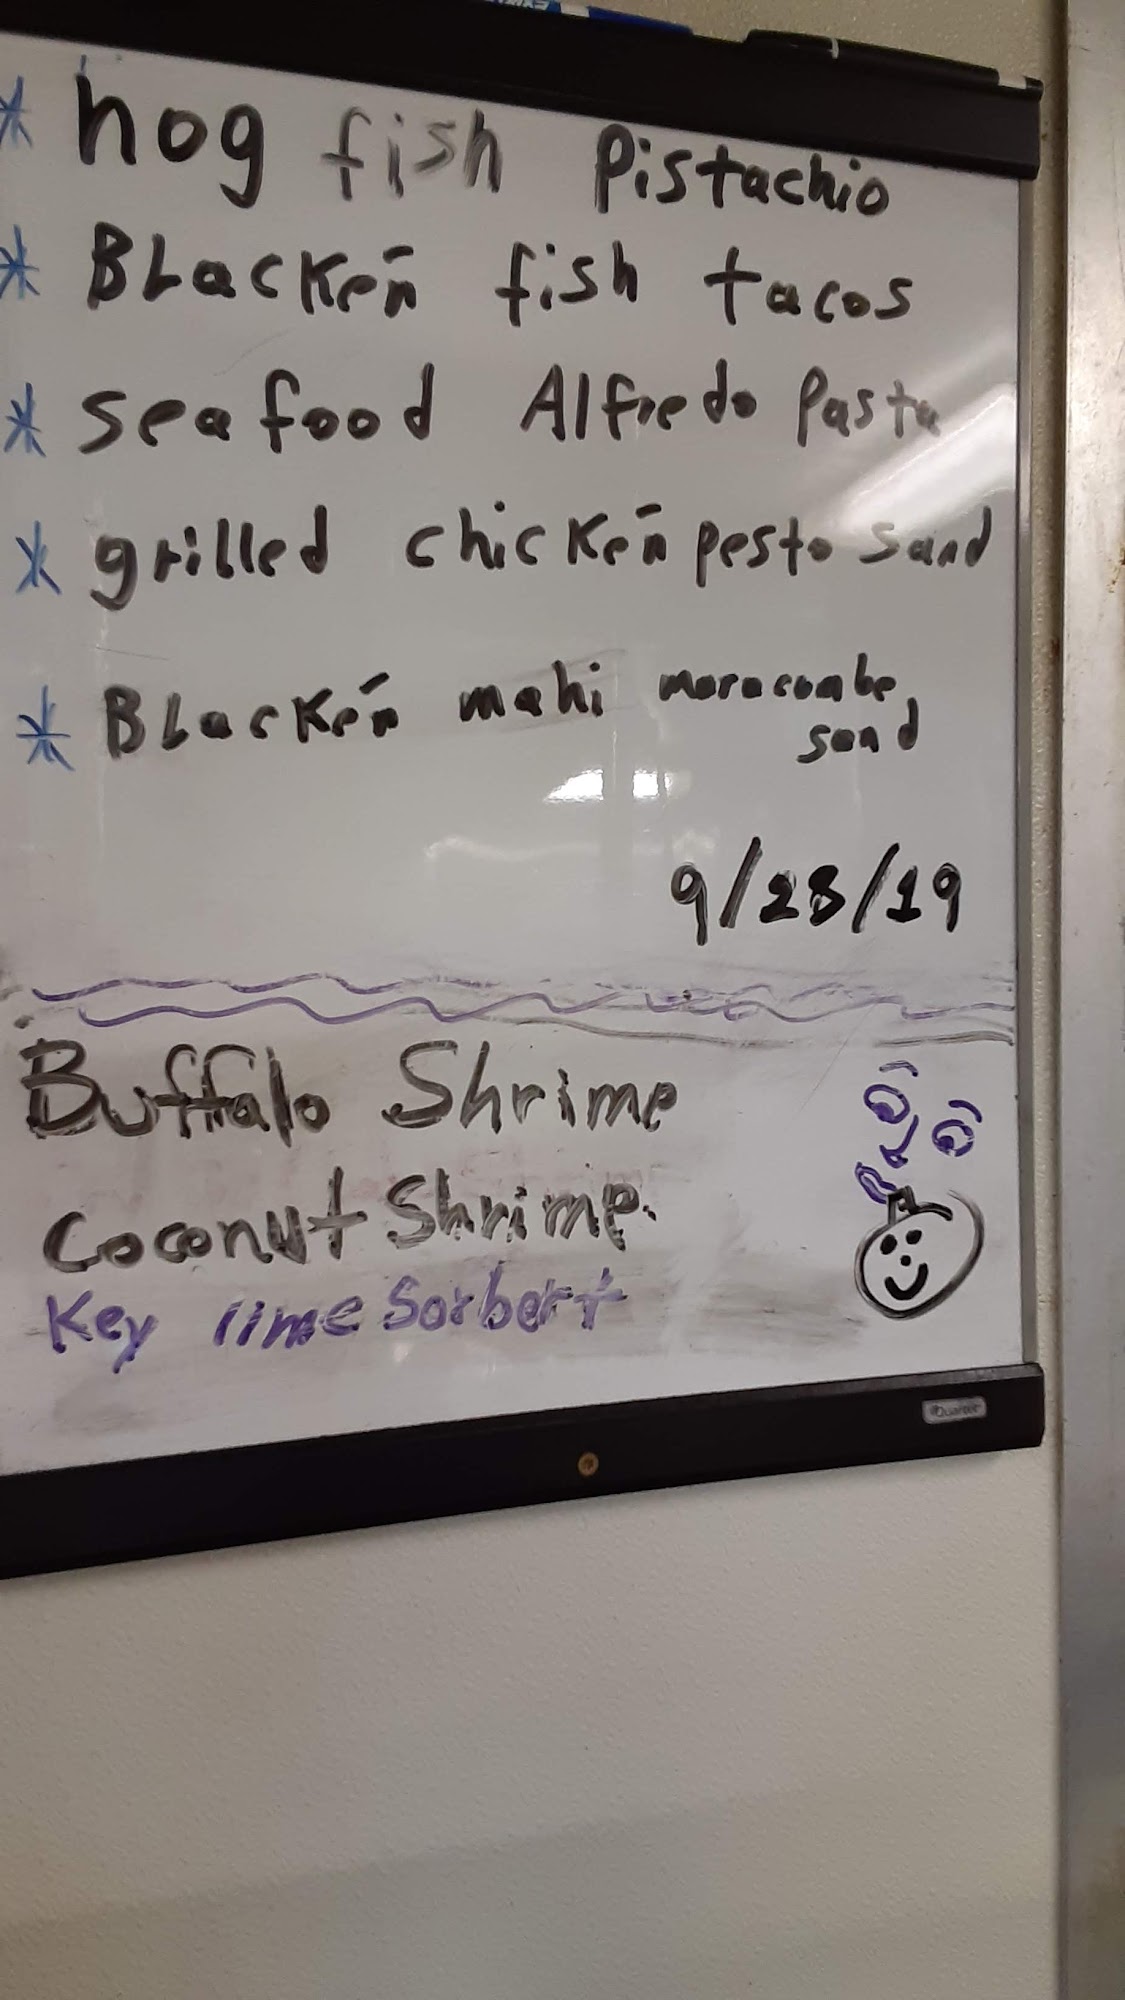 * hog fish Pistachio
* Blacken fish tacos
* seafood Alfredo Pasta
* grilled chicken pesto sand
* Blacken mahi moracombe
sand
9/28/19
Buffalo Shrime
Coconut Shrimp.
Key lime Sorbert
Quartet